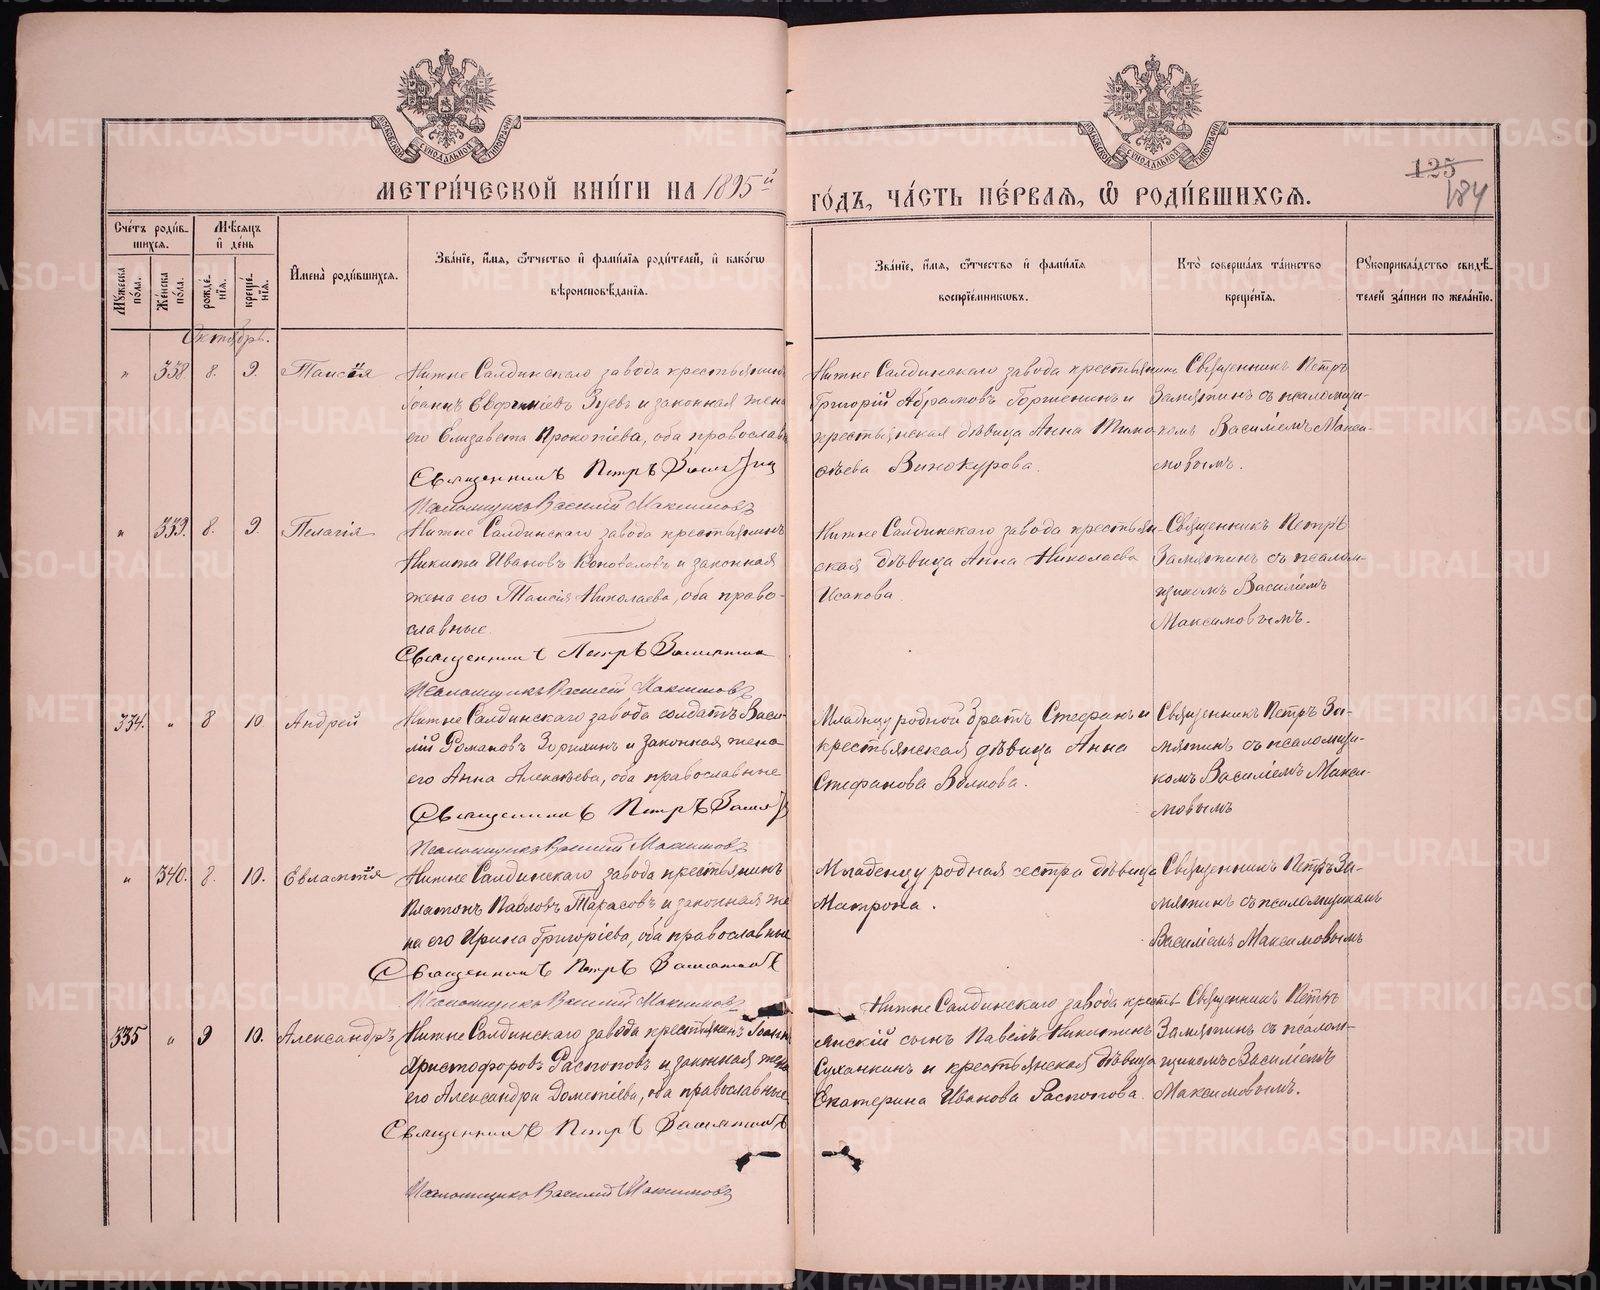 МЕТРИ́ЧЕСКОЙ КНИ́ГИ НА 1895й ГО́ДЪ, ЧА́СТЬ ПЕ́РВАѦ, Ѡ РОДИ́ВШИХСѦ.
125
184
Сче́тъ роди́в-
шихся.
Мѣсяцъ
и де́нь
Му́жеска по́ла.
Же́нска по́ла.
рожде́нія.
креще́нія.
Имена̀ роди́вшихся.
Зва́нїе, и́мя, о́тчество и фами́лїя роди́телей, и како́гѡ
вѣроисповѣ́данїя.
Зва́нїе, и́мя, о́тчество и фами́лїя
воспрїе́мникѡвъ.
Кто̀ соверша́лъ та́инство
креще́нїя.
Рукоприкла́дство свидѣ́-
телей за́писи по жела́нїю.
Октябрь.
" 338 8. 9. Таисія
Нижне Салдинскаго завода крестьянинъ
Іоаннъ Зуевъ и законная жена
его Елизавета Прокопіева, оба православ
Священникъ Петръ Замятин
Псаломщикъ Василий Максимовъ
Нижне Салдинскаго завода крестьянинъ
Григорій Абрамовъ и
крестьянская дѣвица Анна Тимо-
ѳеева Винокурова.
Священникъ Петръ
Замятинъ съ псаломщи-
комъ Василіемъ Макси-
мовымъ.
" 339. 8. 9. Пелагія
Нижне Салдинскаго завода крестьянинъ
Никита Ивановъ Коноваловъ и законная
жена его Таисія Николаева, оба право-
славные.
Священникъ Петръ Замятин
Псаломщикъ Василий Максимовъ
Нижне Салдинскаго завода крестьян-
ская дѣвица Анна Николаева
Исакова.
Священникъ Петръ
Замятинъ съ псалом-
щикомъ Василіемъ
Максимовымъ.
334. " 8 10 Андрей
Нижне Салдинскаго завода солдатъ Васи-
лій Романовъ Зорихинъ и законная жена
его Анна Алексѣева, оба православные
Священникъ Петръ Замят
Псаломщикъ Василий Максимовъ
Младенцу родной братъ Стефанъ и
крестьянская дѣвица Анна
Стефанова Волкова.
Священникъ Петръ За-
мятинъ съ псаломщи-
комъ Василіемъ Макси-
мовымъ
" 340. 8. 10. Евлампія
Нижне Салдинскаго завода крестьянинъ
Платонъ Павловъ Тарасовъ и законная же
на его Ирина Григоріева, оба православные
Священникъ Петръ Замятинъ
Псаломщикъ Василий Максимовъ
Младенцу родная сестра дѣвица
Матрона.
Священникъ Петръ За-
мятинъ съ псаломщикомъ
Василіемъ Максимовымъ
335 " 9 10. Александръ
Нижне Салдинскаго завода крестьянинъ Іоаннъ
Христофоровъ Распоповъ и законная жена
его Александра Дометіева, оба православные
Священникъ Петръ Замятинъ
Псаломщикъ Василий Максимовъ
Нижне Салдинскаго завода кресть-
янскій сынъ Павелъ Никитинъ
Суханкинъ и крестьянская дѣвица
Екатерина Иванова Распопова.
Священникъ Петръ
Замятинъ съ псалом-
щикомъ Василіемъ
Максимовымъ.
METRIKI.GASO-URAL.RU